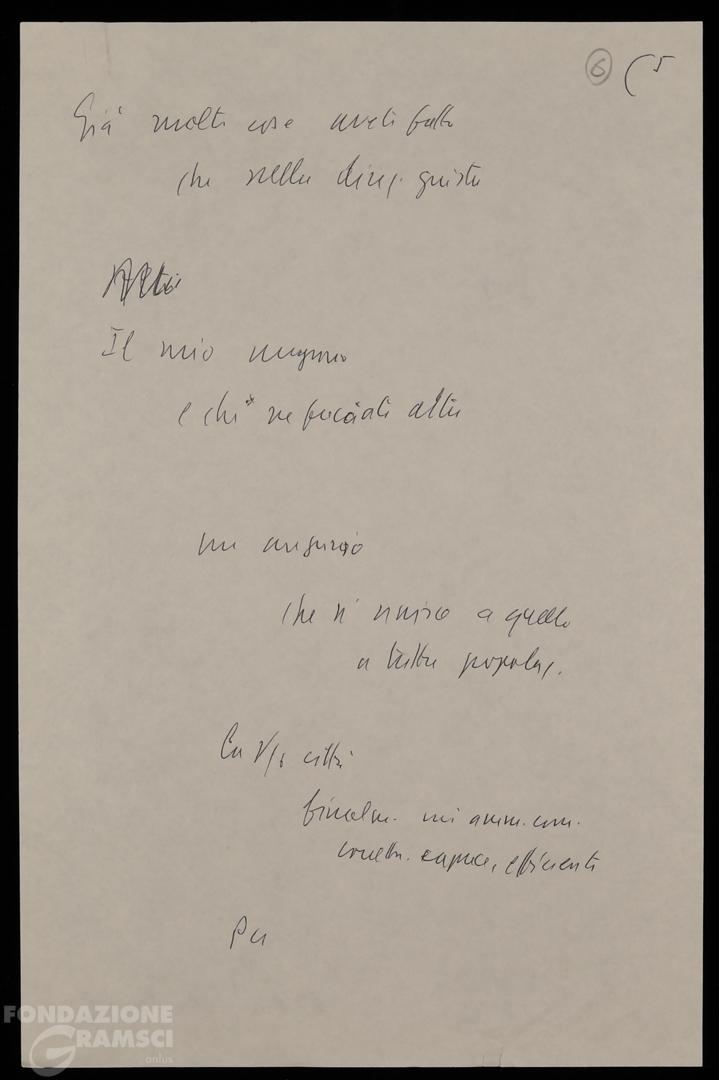 6 (5
Già molte cose avete fatto
che nella direz. giusta
Altri
Il mio augurio
è che ne facciate altre
un augurio
che si unisce a quello
a tutta popolaz.
La v/s città
finalm. un'amm. com.
corretta, capace, efficiente
PCI
FONDAZIONE
GRAMSCI
onlus